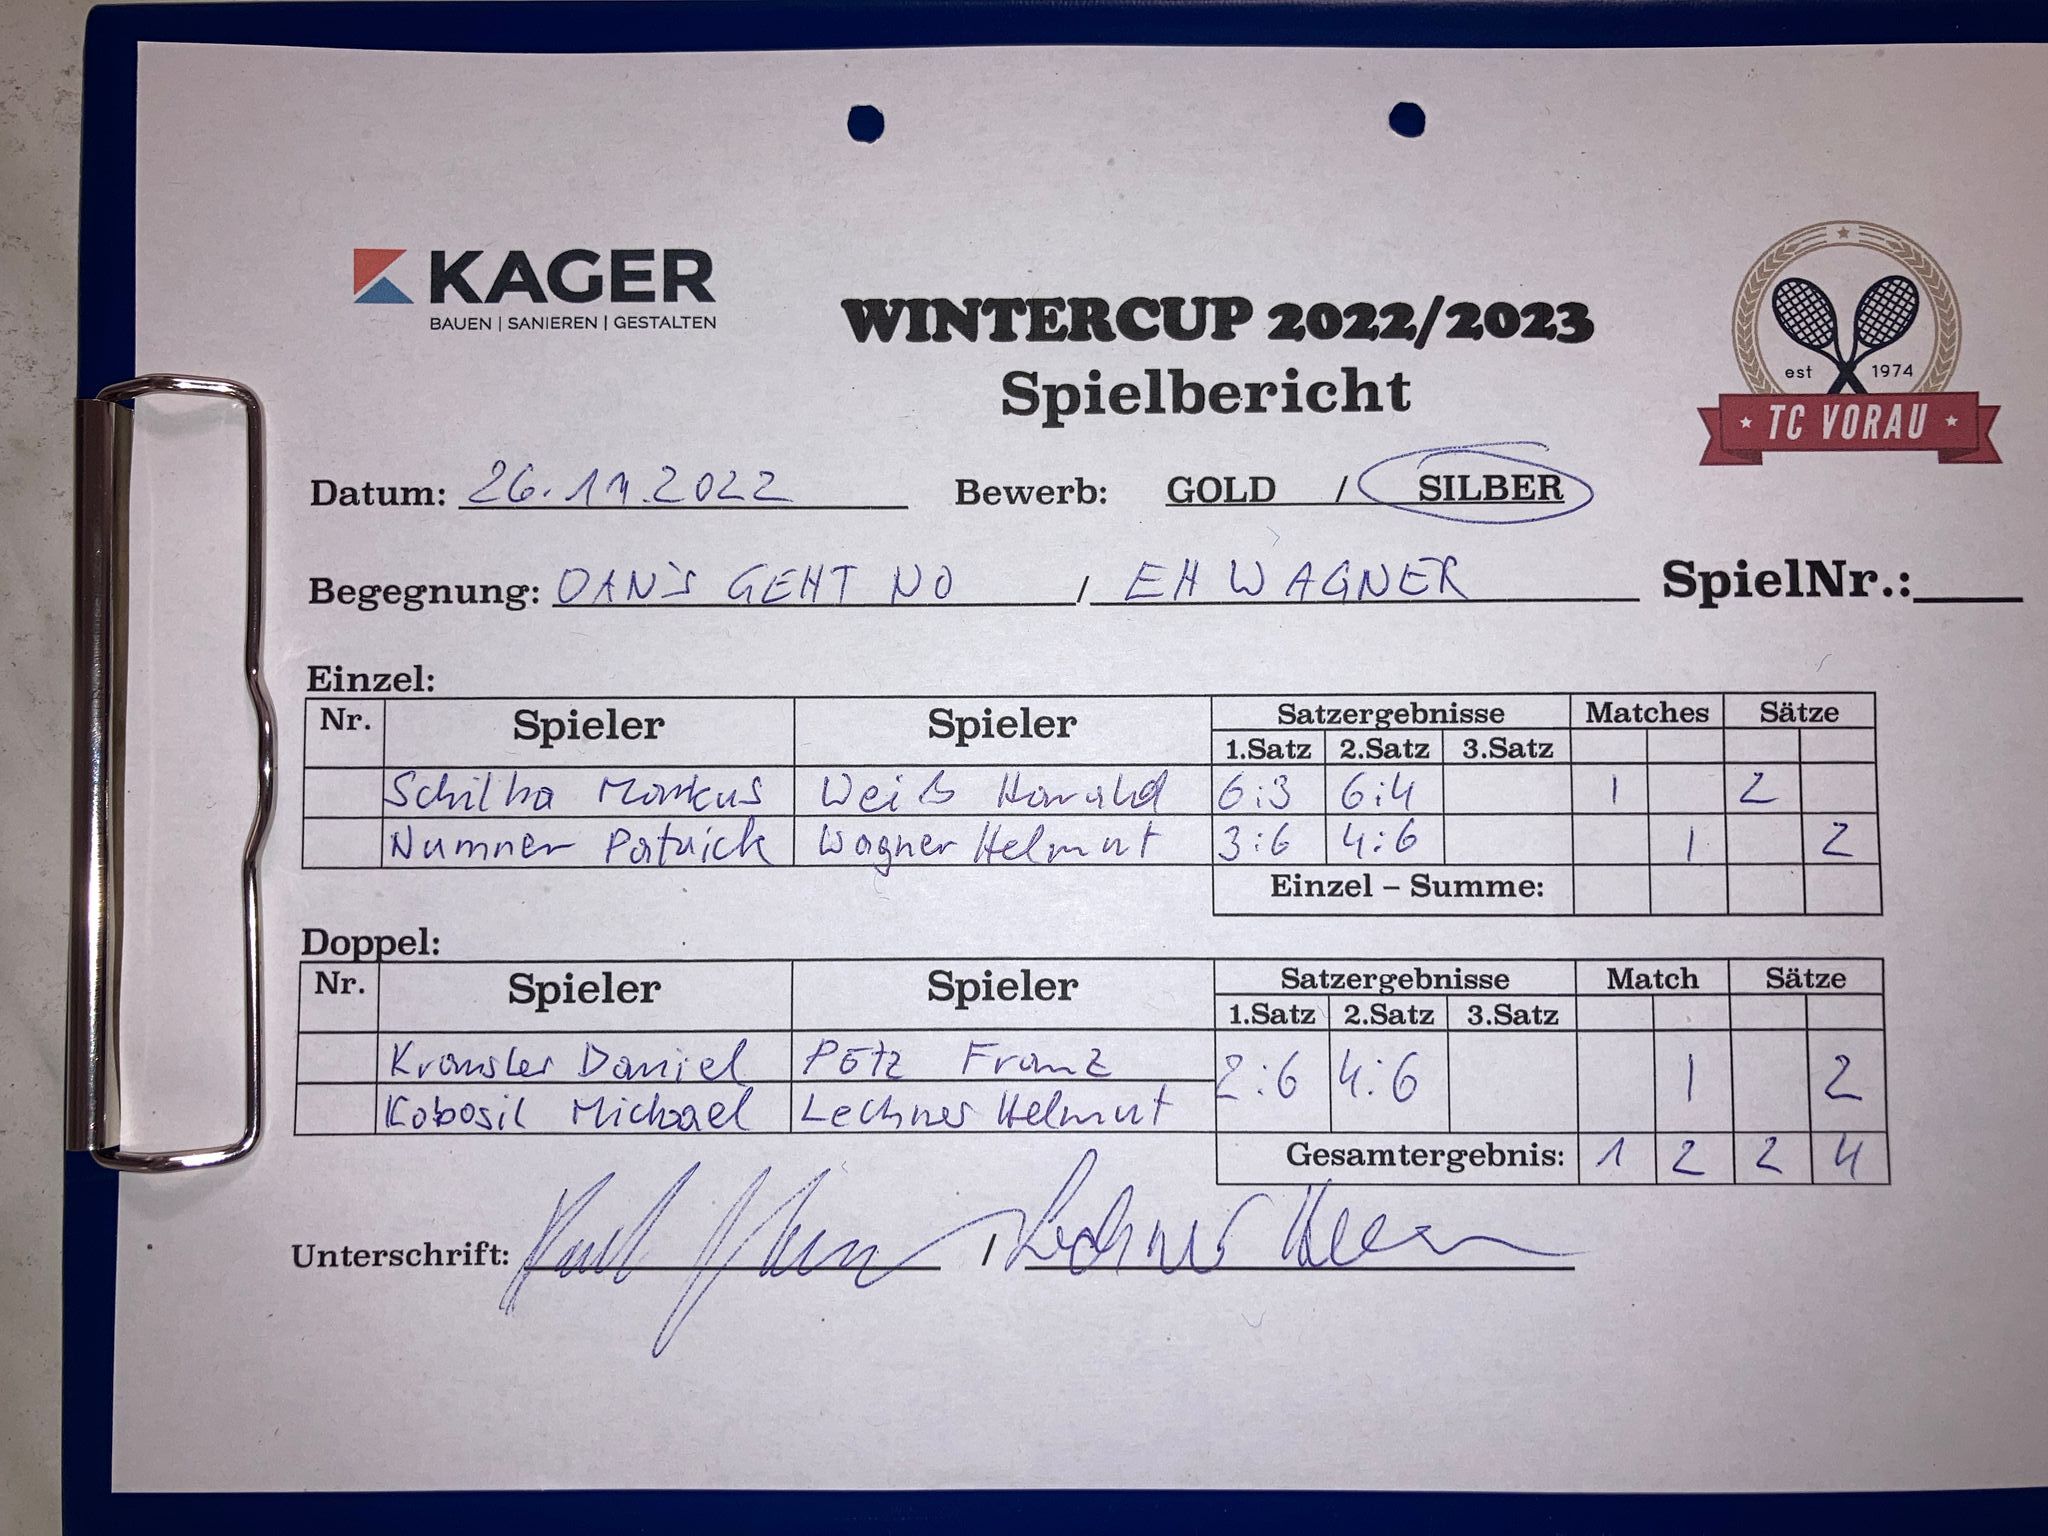 KAGER
BAUEN | SANIEREN | GESTALTEN
WINTERCUP 2022/2023
Spielbericht
est 1974
TC VORAU
Datum: 26.11.2022 Bewerb: GOLD / SILBER
Begegnung: OAN'S GEHT NO / EH WAGNER SpielNr.:
Einzel:
Nr. Spieler Spieler Satzergebnisse Matches Sätze
1.Satz 2.Satz 3.Satz
Markus Weiß Harald 6:3 6:4 1 2
Patrick Wagner Helmut 3:6 4:6 1 2
Einzel – Summe:
Doppel:
Nr. Spieler Spieler Satzergebnisse Match Sätze
1.Satz 2.Satz 3.Satz
Daniel Pötz Franz 2:6 4:6 1 2
Kobosil Michael Lechner Helmut
Gesamtergebnis: 1 2 2 4
Unterschrift: / Lechner